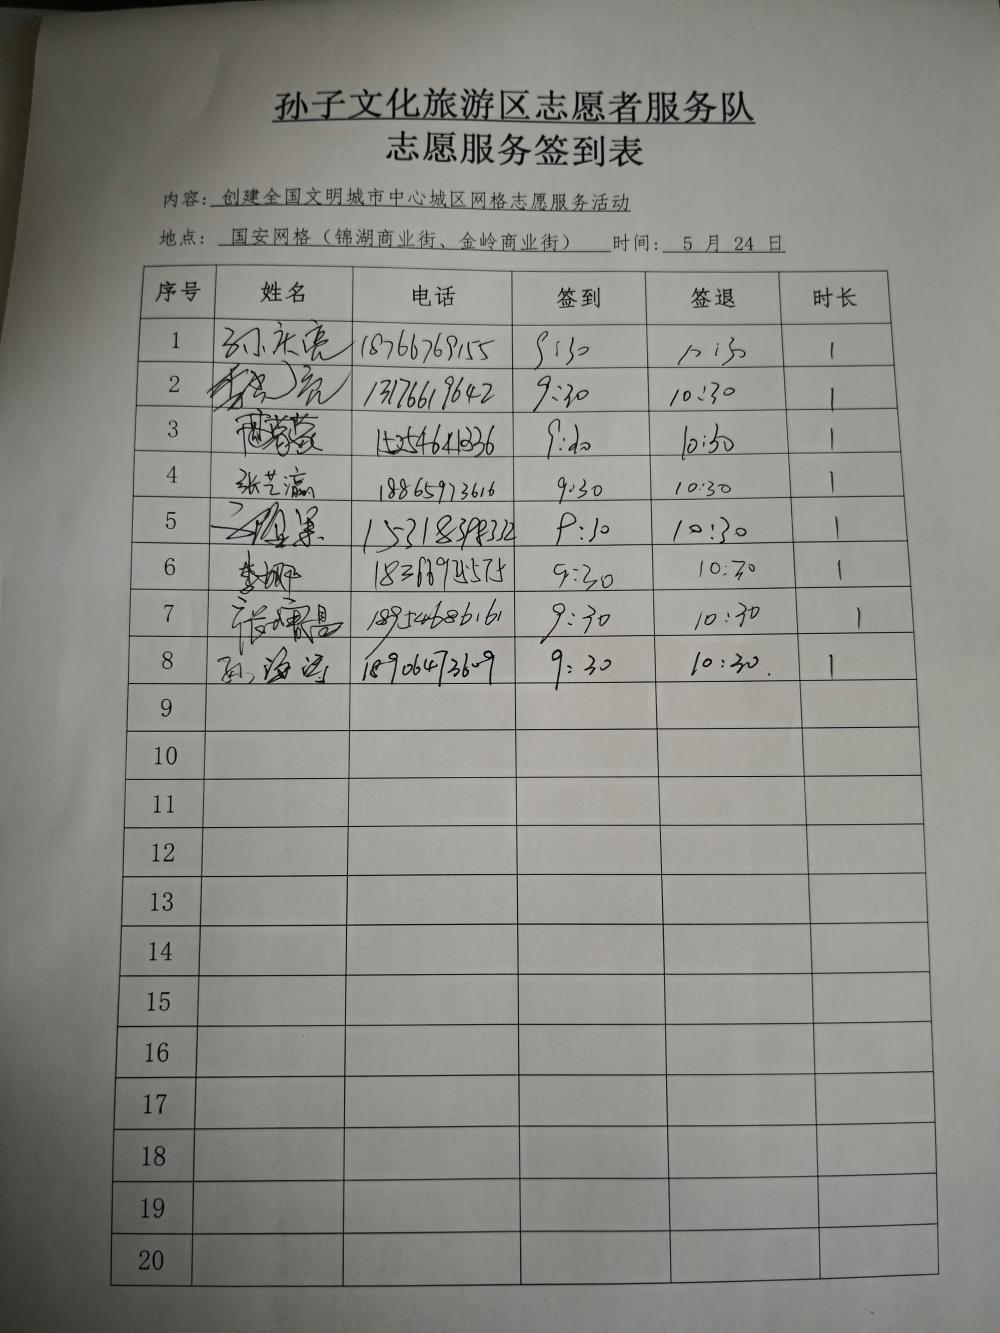 孙子文化旅游区志愿者服务队
志愿服务签到表
内容: 创建全国文明城市中心城区网格志愿服务活动
地点: 国安网格（锦湖商业街、金岭商业街） 时间: 5 月 24 日
序号 姓名 电话 签到 签退 时长
1 孙庆亮 18766769155 9:30 10:30 1
2 13176619642 9:30 10:30 1
3 9:30 10:30 1
4 张艺瀛 18865973616 9:30 10:30 1
5 9:30 10:30 1
6 李娜 18366925575 9:30 10:30 1
7 18954686161 9:30 10:30 1
8 孙海涛 18906473609 9:30 10:30. 1
9
10
11
12
13
14
15
16
17
18
19
20